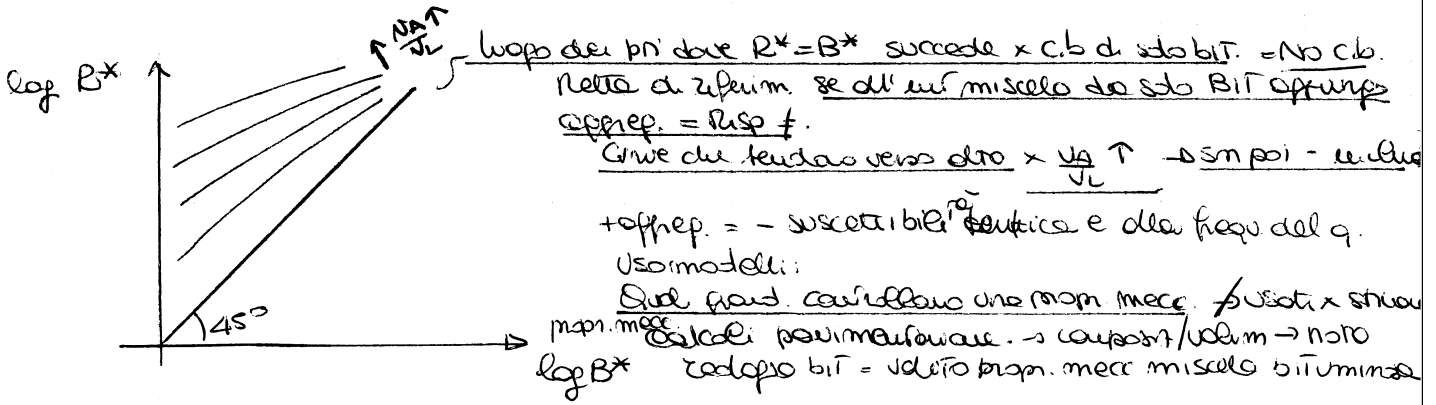 ↑ VA/VL ↑
log B*
luogo dei pti dove R*=B* succede x c.b di solo biT. = No c.b.
Retta di riferim. se all'int miscela da solo BIT aggiungo
aggreg. = Risp ≠.
Curve che tendono verso alto x VA/VL ↑ → sn poi - inclin
+aggreg. = - suscettibilità termica e alla frequ. del q.
Uso modelli:
Qual grand. controllano una propr. mecc. usati x
propr. mecc
calcoli pavimentazione → composiz/volum → noto
45°
log B*
reologo biT = valuto propr. mecc miscela bituminosa